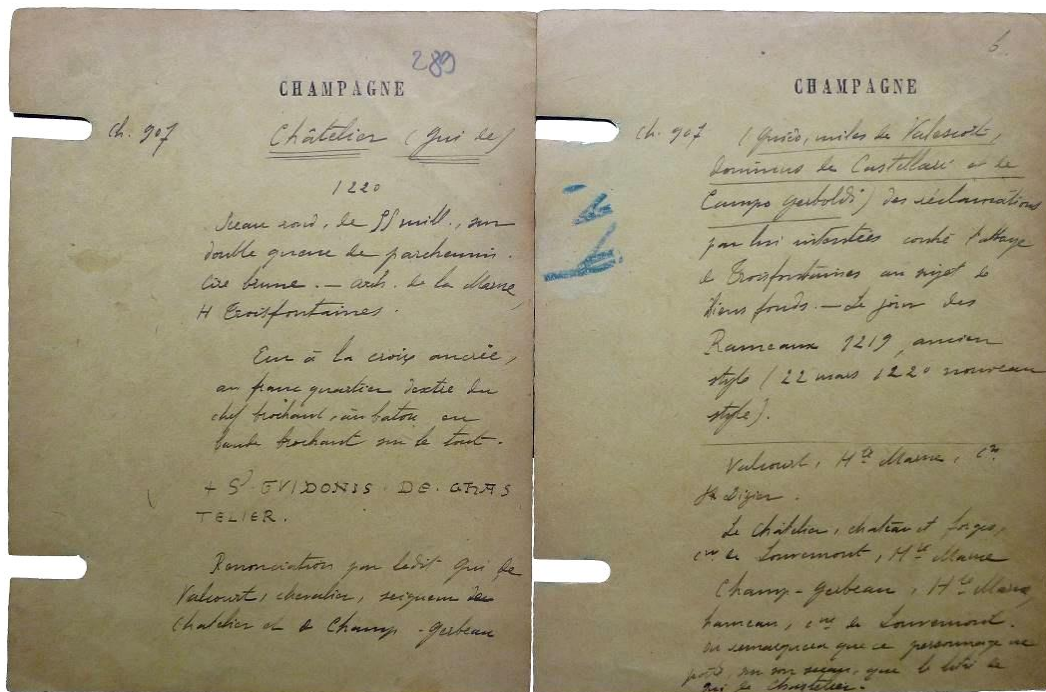 289
CHAMPAGNE
Ch. 907 Châtelier (Gui de)
1220
Sceau rond, de 55 mill., sur
double queue de parchemin.
Cire brune. — arch. de la Marne,
H Troisfontaines.
Ecu à la croix ancrée,
au franc quartier dextre du
chef brochant, au baton en
bande brochant sur le tout.
+ S' GVIDONIS · DE · CHAS
TELIER.
Renonciation par ledit Gui de
Valcourt, chevalier, seigneur de
Chatelier et de Champ-Gerbeau
6.
CHAMPAGNE
Ch. 907 (Guido, miles de
dominus de Castellari et de
Campo Gerboldi) des réclamations
par lui intentées contre l'abbaye
de Troisfontaines au sujet de
biens fonds. — Le jour des
Rameaux 1219, ancien
style (22 mars 1220 nouveau
style).
Valcourt, Hte Marne, cne
St Dizier.
Le Châtelier, château et forges,
cne de Louvemont, Hte Marne
Champ-Gerbeau, Hte Marne,
hameau, cne de Louvemont.
On remarquera que ce personnage ne
porte, sur son sceau, que le titre de
Gui de Chastelier.